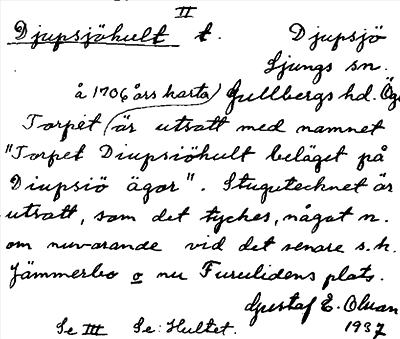 II
Djupsjöhult t. Djupsjö
Ljungs sn.
å 1706 års karta Gullbergs hd. Ög
Torpet är utsatt med namnet
"Torpet Diupsiöhult beläget på
Diupsiö ägor". Stugutechnet är
utsatt, som det tyckes, något n.
om nuvarande vid det senare s.k.
Jämmerbo o nu Furulidens plats.
Gustaf E. Olsson
Se III Se: Hultet. 1937